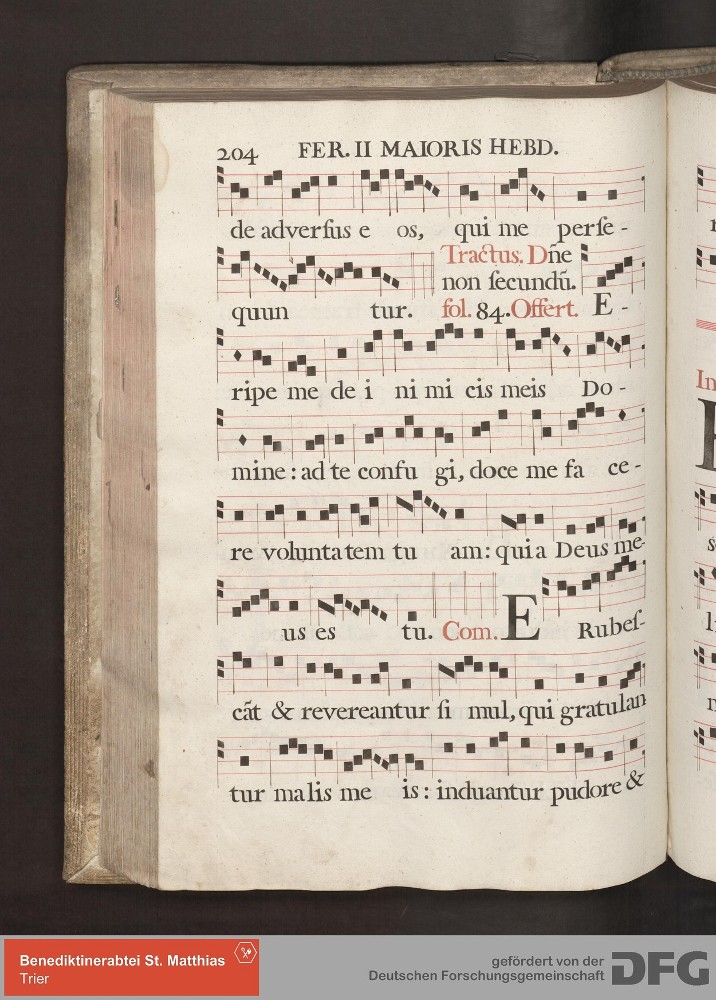 204 FER. II MAIORIS HEBD.
de adversus e os, qui me perse-
Tractus. Dñe
non secundū.
quun tur. fol. 84. Offert. E-
ripe me de i ni mi cis meis Do-
mine: ad te confu gi, doce me fa ce-
re voluntatem tu am: quia Deus me-
us es tu. Com. E Rubes-
cāt & revereantur si mul, qui gratulan
tur malis me is: induantur pudore &
Benediktinerabtei St. Matthias
Trier
gefördert von der
Deutschen Forschungsgemeinschaft DFG